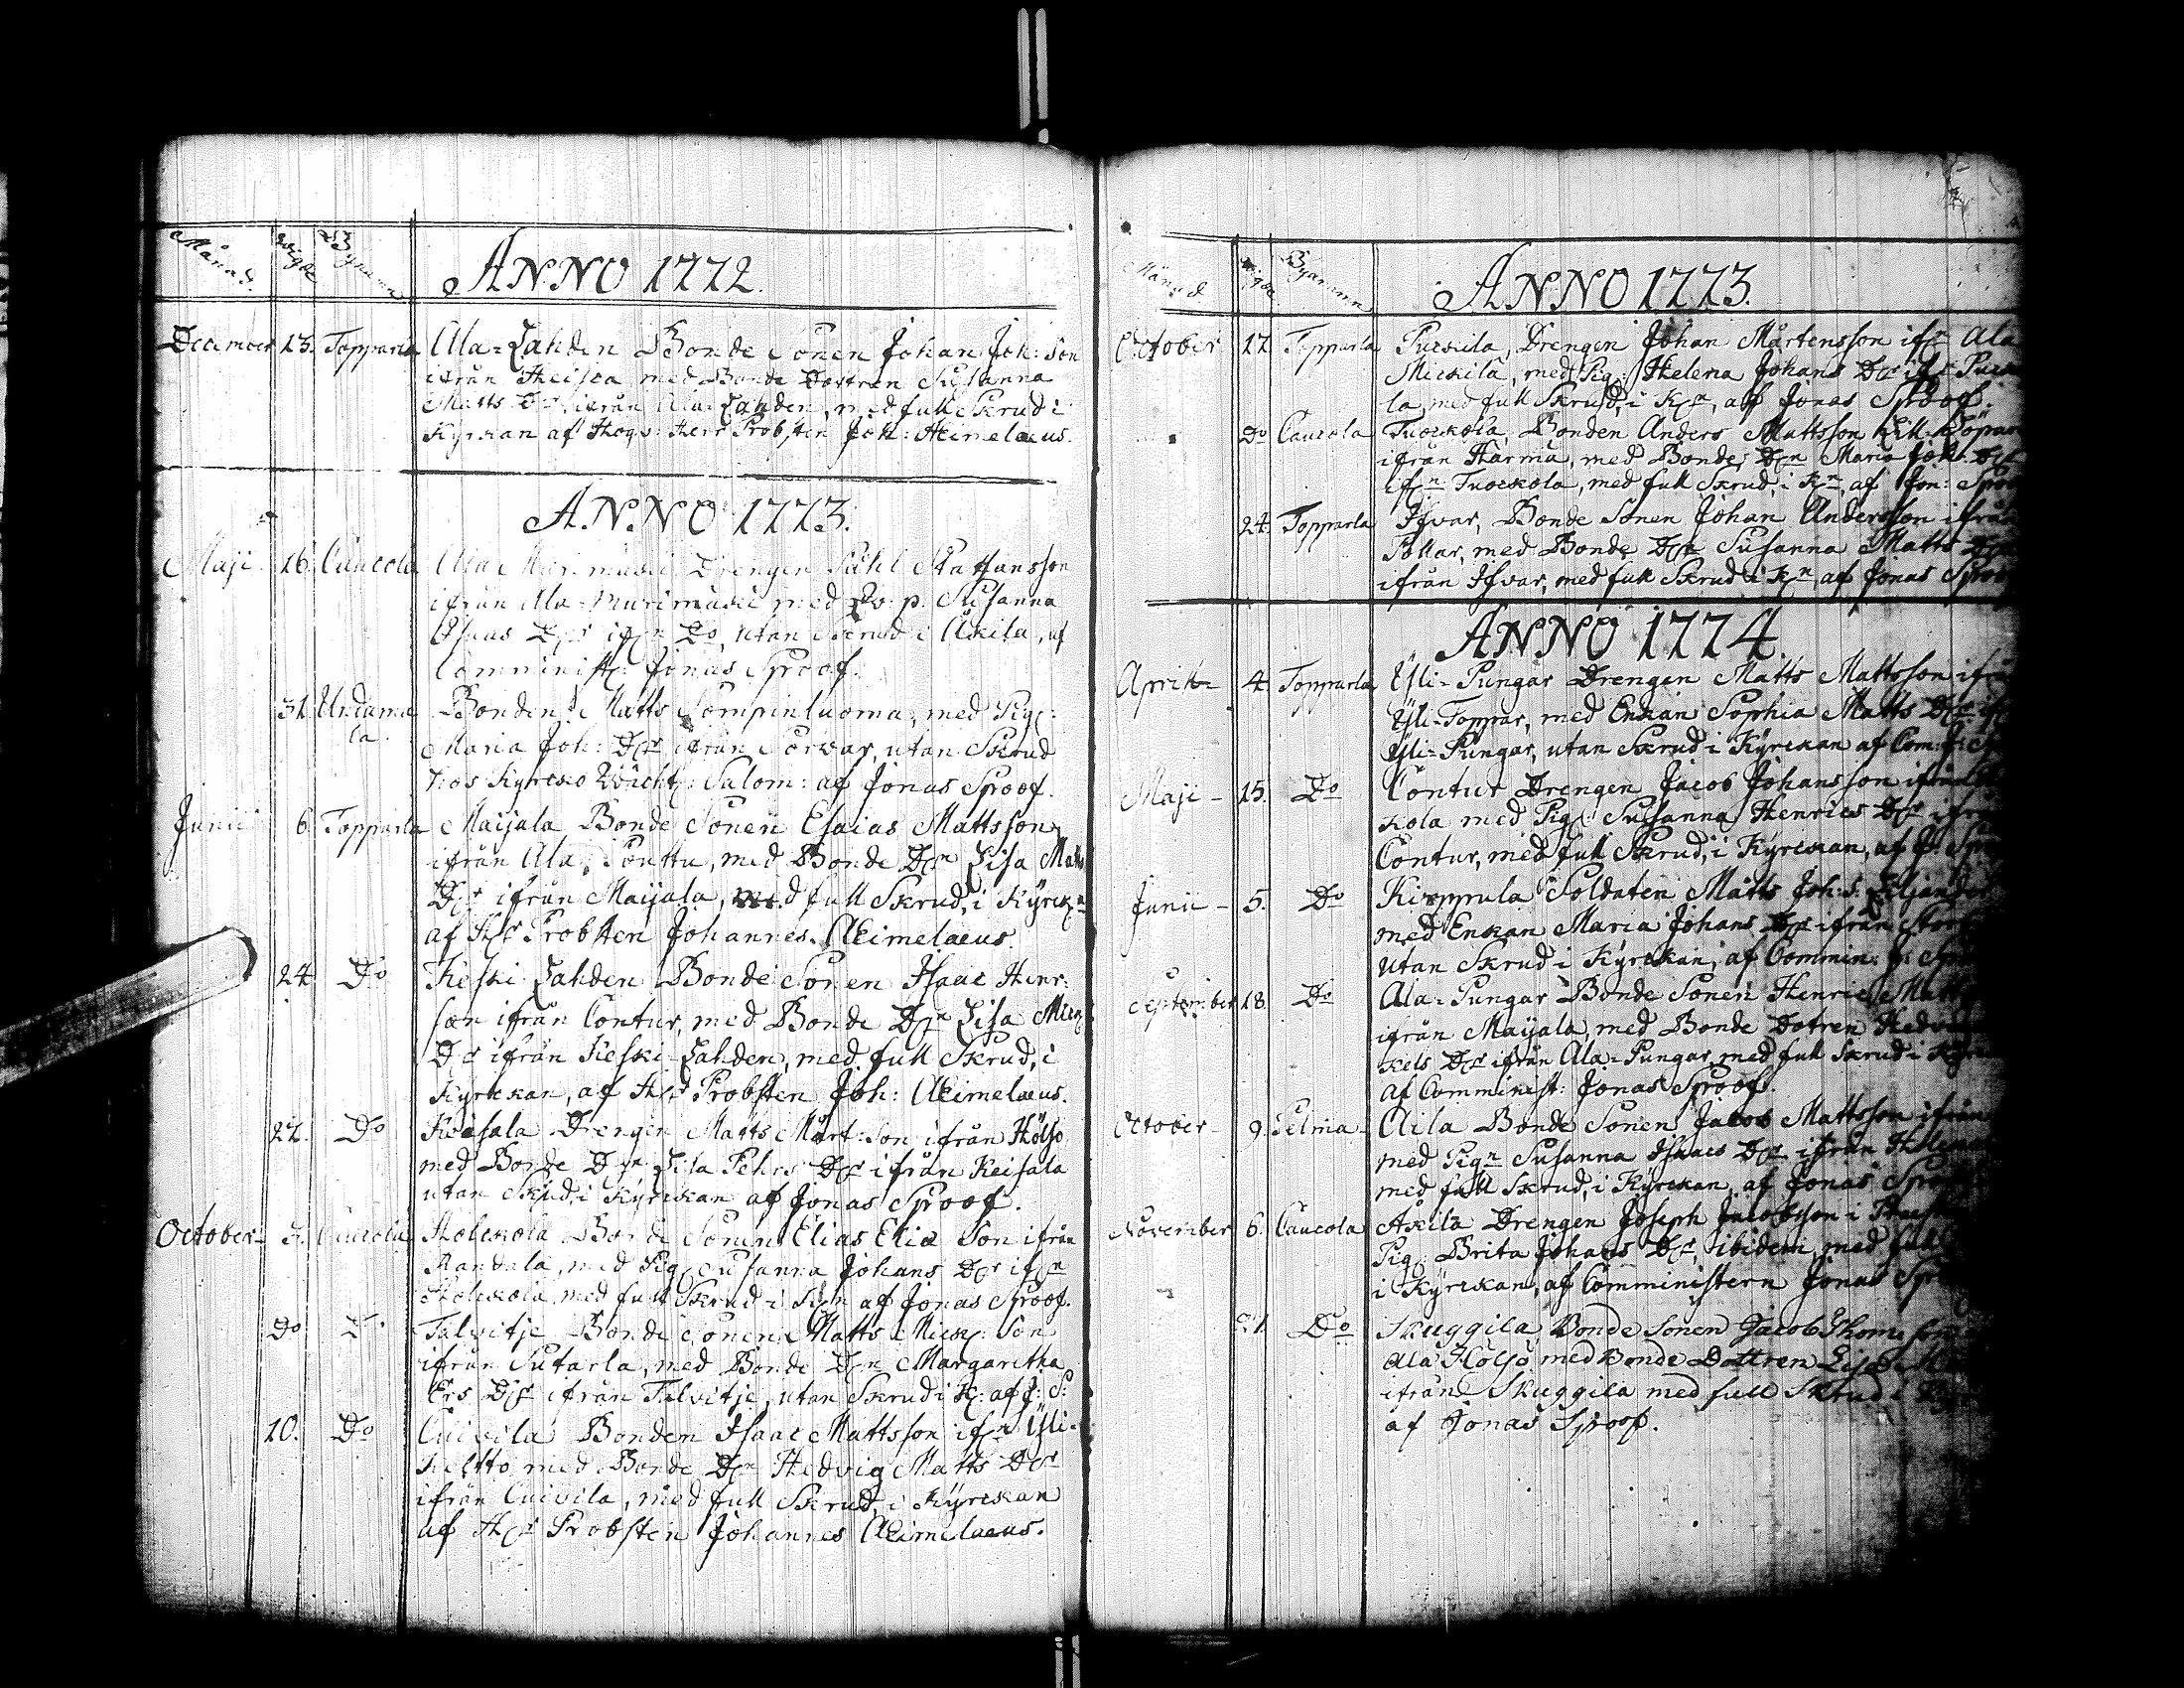 Månad. Wigde Bynamn ANNO 1772.
December 13. Topparla Ala-Lahden Bonde Sonen Johan Joh: Son
ifrån Heisca med Bonde Dottren Susanna
Matts Dr ifrån Ala-Lahden, med full Skrud i
Kyrkan af Högv: Herr Probsten Joh: Aeimelaeus.
ANNO 1773.
Maji 16. Caucola Ala Murimäki Drengen Påhl Staffansson
ifrån Ala-Murimäki med Qv. p. Susanna
Isaacs Dr ifrn Do, utan Skrud i Askila, af
Comminist: Jonas Sproof.
31. Undama Bonden Matts Sompinluoma, med Pig:
la. Maria Joh: Dr ifrån Sorvar, utan Skrud
hos Kyrcko Wächt: Salom: af Jonas Sproof.
Junii 6. Topparla Maijala Bonde Sonen Esaias Mattsson
ifrån Ala-Penttu, med Bonde Drn Lisa Matts
Dr ifrån Maijala, med full Skrud, i Kyrckn
af Hr Probsten Johannes Aeimelaeus.
24. Do Keski Lahden Bonde Sonen Isaac Henr:
son ifrån Contur, med Bonde Drn Lisa Mick
Dr ifrån Keski-Lahden, med full Skrud, i
Kyrckan, af Hr Probsten Joh: Aeimelaeus.
27. Do Keisala Drengen Matts Mårt: Son ifrån Hölso
med Bonde Drn Lisa Pehrs Dr ifrån Keisala
utan Skrud, i Kyrckan af Jonas Sproof.
October 3. Caucola Holckola Bonde Sonen Eliae Son ifrån
Randala, med Pig: Susanna Johans Dr ifrn
Holckola, med full Skrud i Kyn af Jonas Sproof.
Do Do Talvitje Bonde Sonen Matts Mick: Son
ifrån Sutarla, med Bonde Drn Margaretha
Ers Dr ifrån Talvitje, utan Skrud i K: af J: S:
10. Do Cuivila Bonden Isaac Mattsson ifrn Yli-
Keltto med Bonde Drn Hedvig Matts Dr
ifrån Cuivila, med full Skrud, i Kyrckan
af Hr Probsten Johannes Aeimelaeus.
Månad Wigde Bynamn ANNO 1773.
October 17 Topparla Puckila, Drengen Johan Mårtensson ifrn Ala
Mickila, med Pig: Helena Johans Dr ifr Puck
la, med full Skrud, i Kyn, af Jonas Sproof.
Do Caucola Tuockola, Bonden Anders Mattsson
ifrån Härmä, med Bonde Drn Maria Joh: Dr
ifrn Tuockola, med full Skrud, i Kn, af Jon: Sproo
24. Topparla Ifvar, Bonde Sonen Johan Andersson ifrån
Pollar, med Bonde Drn Susanna Matts Dr
ifrån Ifvar, med full Skrud i Kn, af Jonas Sproo
ANNO 1774.
April 4. Topparla Yli-Pungar Drengen Matts Mattsson ifrån
Yli-Toppar, med Enkan Sophia Matts Dr ifr
Yli-Pungar, utan Skrud i Kyrckan af Com:
Maji 15. Do Contur Drengen Jacob Johansson ifrån
kola med Pig: Susanna Henrics Dr ifrå
Contur, med full Skrud, i Kyrckan, af J: Spr
Junii 5. Do Kirppula Soldaten Matts Joh: S.
med Enkan Maria Johans Dr ifrån
utan Skrud i Kyrckan, af Commin: J: Spr
September 18. Do Ala-Pungar Bonde Sonen Henric Matts
ifrån Maijala, med Bonde Dotren Hedv
kels Dr ifrån Ala-Pungar, med full Skrud i Kyrc
af Comminist: Jonas Sproof.
October 9. Pelma Aila Bonde Sonen Jacob Mattsson ifrån
med Pign Susanna Isaacs Dr ifrån
med full Skrud, i Kyrckan, af Jonas Spro
November 6. Caucola Askila Drengen Joseph Jacobsson i
Pig: Brita Johans Dr, ibidem, med full
i Kyrckan, af Comministern Jonas Spro
27. Do Skuggila Bonde Sonen Jacob Thom: son
Ala Hölsö med Bonde Dottren Lisa
ifrån Skuggila med full Skrud i
af Jonas Sproof.